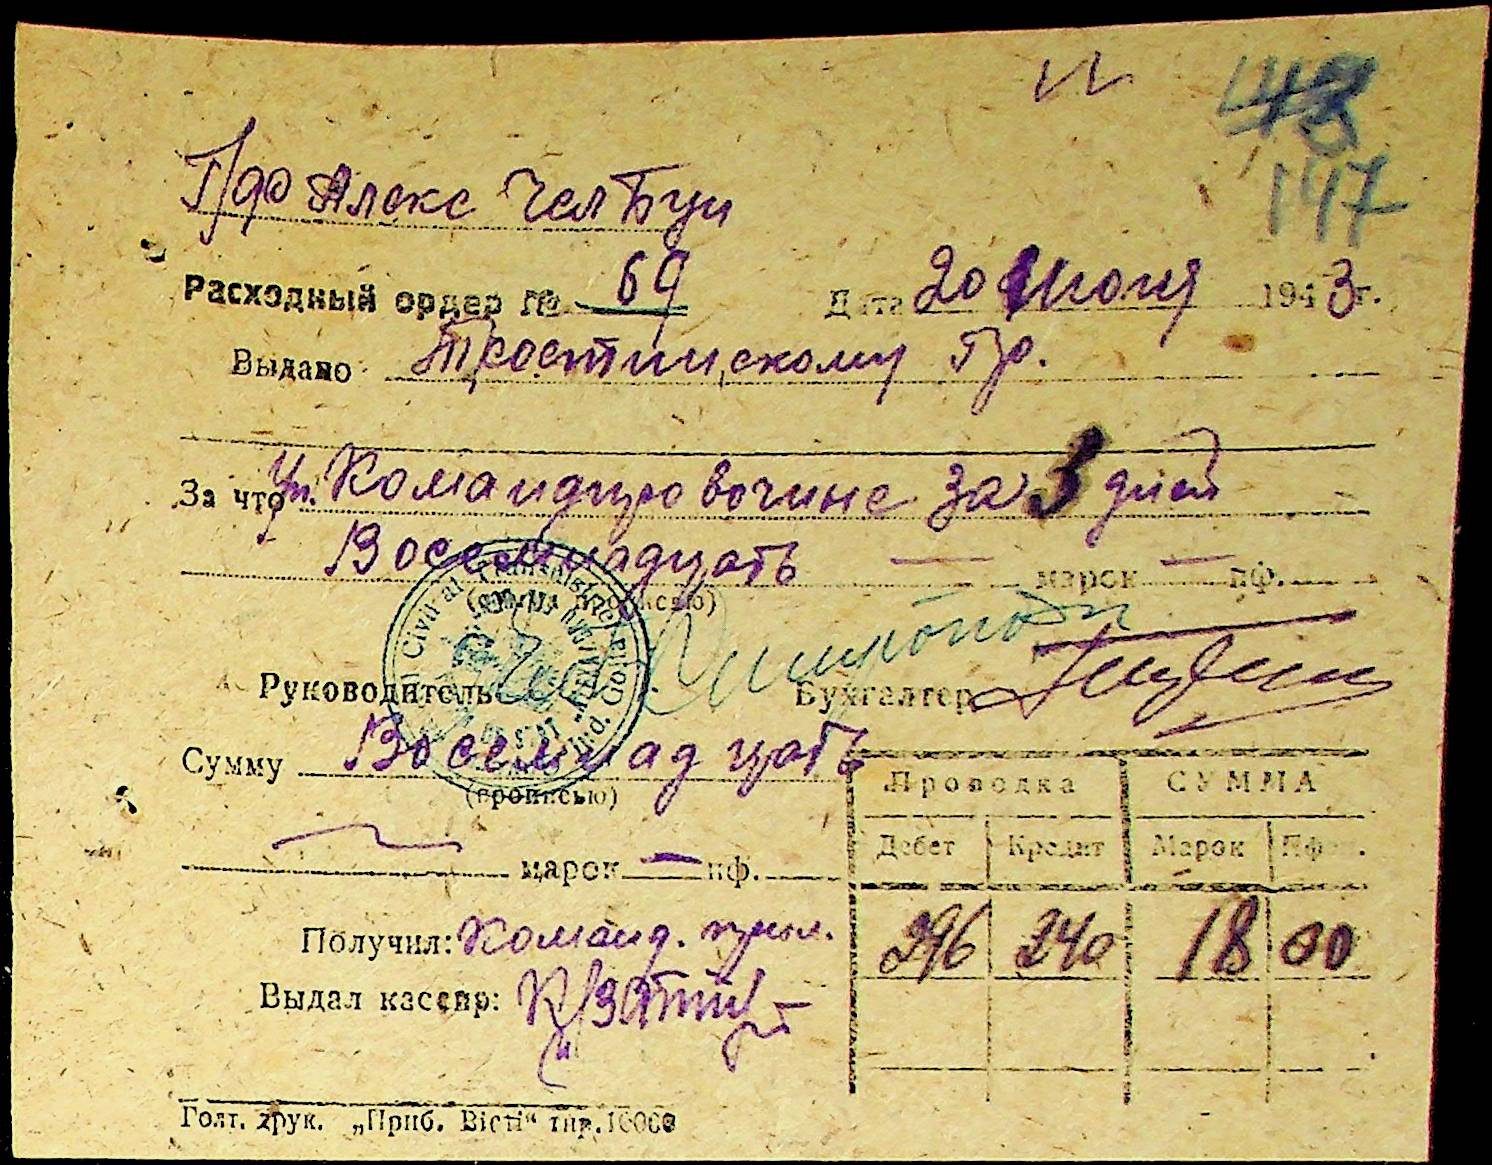 147
Расходный ордер № 69 Дата 20 Июня 1943 г.
Выдано Тростинскому Гр.
За что Командировочные за 3 дней
Восемнадцать — марок — пф.
(сумма прописью)
Руководитель Бухгалтер
Сумму Восемнадцать
(прописью)
марок — пф.
Проводка СУММА
Дебет Кредит Марок Пфен.
296 240 18 00
Получил: Команд.
Выдал кассир:
Голт. друк. „Приб. Вісті“ тир. 10000